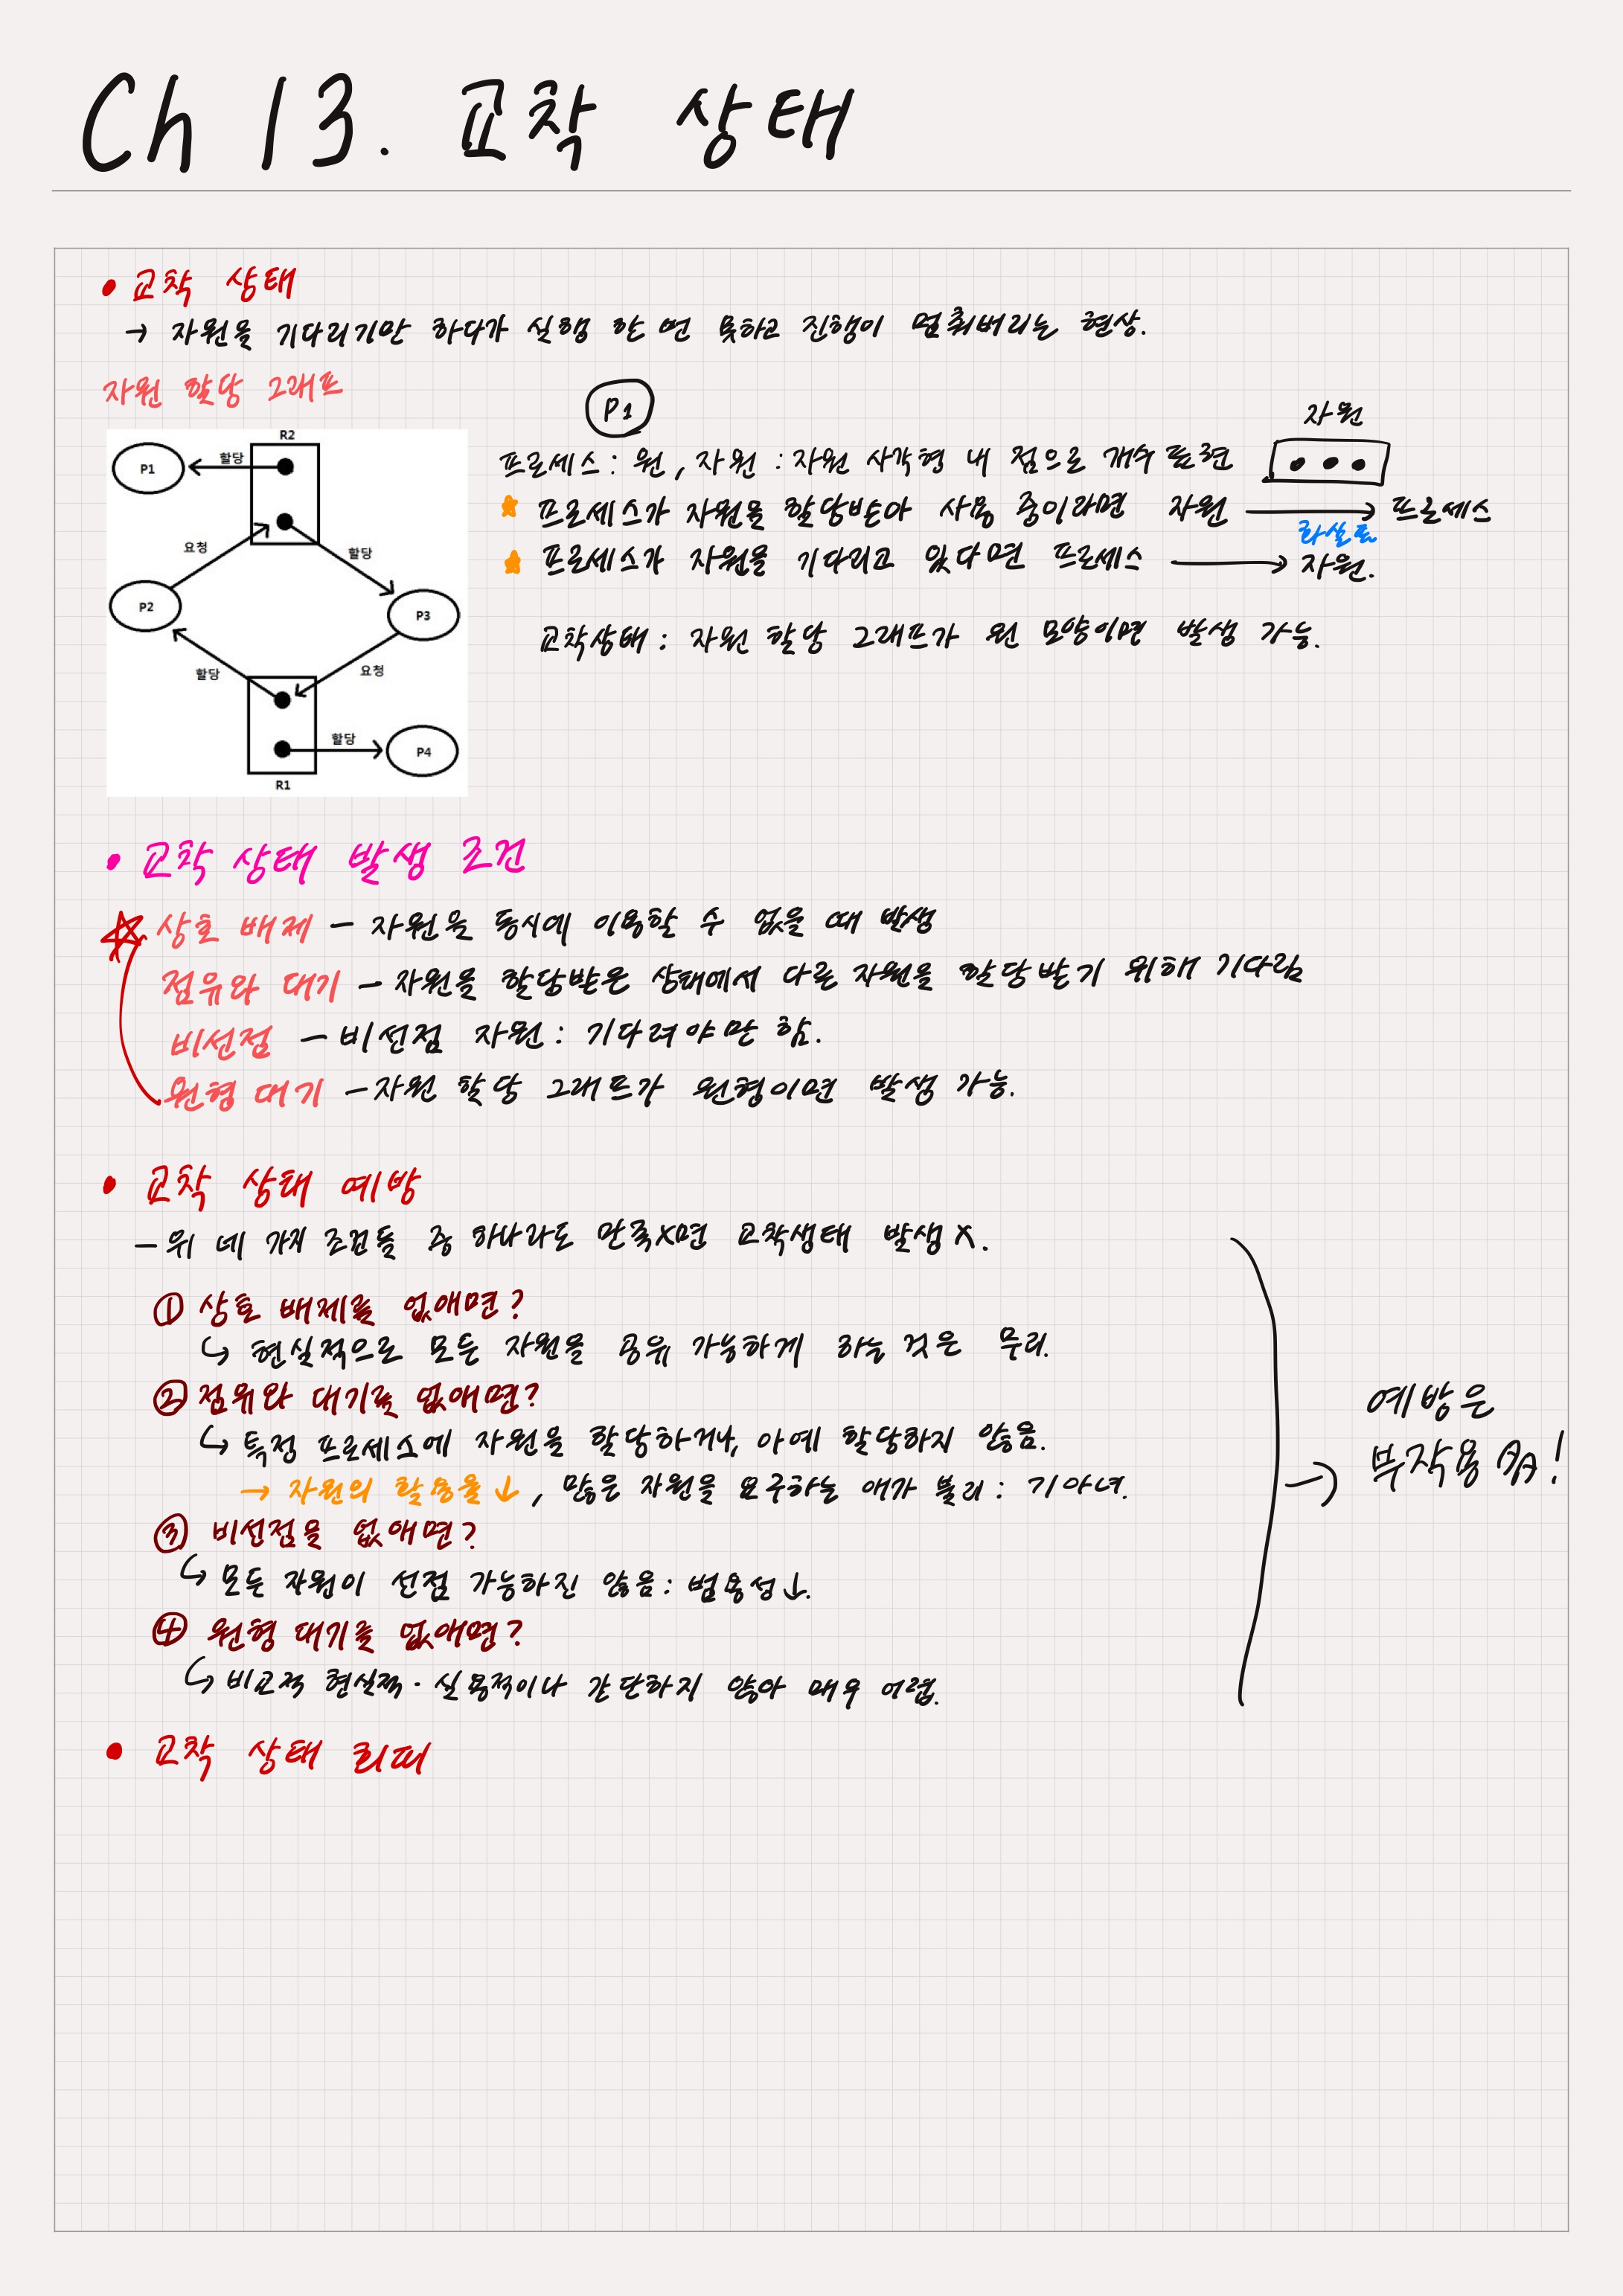 Ch 13. 교착 상태
• 교착 상태
→ 자원을 기다리기만 하다가 실행 한 번 못하고 진행이 멈춰버리는 현상.
자원 할당 그래프
P1
자원
프로세스 : 원, 자원 : 자원 사각형 내 점으로 개수 표현
프로세스가 자원을 할당받아 사용 중이라면 자원 → 프로세스
화살표
프로세스가 자원을 기다리고 있다면 프로세스 → 자원.
교착상태 : 자원 할당 그래프가 원 모양이면 발생 가능.
R2
P1
할당
요청
할당
P2
P3
할당
요청
할당
P4
R1
• 교착 상태 발생 조건
☆ 상호 배제 – 자원을 동시에 이용할 수 없을 때 발생
점유와 대기 – 자원을 할당받은 상태에서 다른 자원을 할당받기 위해 기다림
비선점 – 비선점 자원 : 기다려야만 함.
원형 대기 – 자원 할당 그래프가 원형이면 발생 가능.
• 교착 상태 예방
– 위 네 가지 조건들 중 하나라도 만족X면 교착생태 발생 X.
① 상호 배제를 없애면?
↳ 현실적으로 모든 자원을 공유 가능하게 하는 것은 무리.
② 점유와 대기를 없애면?
↳ 특정 프로세스에 자원을 할당하거나, 아예 할당하지 않음.
→ 자원의 활용률↓, 많은 자원을 요구하는 애가 불리 : 기아녀.
③ 비선점을 없애면?
↳ 모든 자원이 선점 가능하진 않음 : 범용성↓.
④ 원형 대기를 없애면?
↳ 비교적 현실적·실용적이나 간단하지 않아 매우 어렵.
→ 예방은
부작용 多!
• 교착 상태 회피